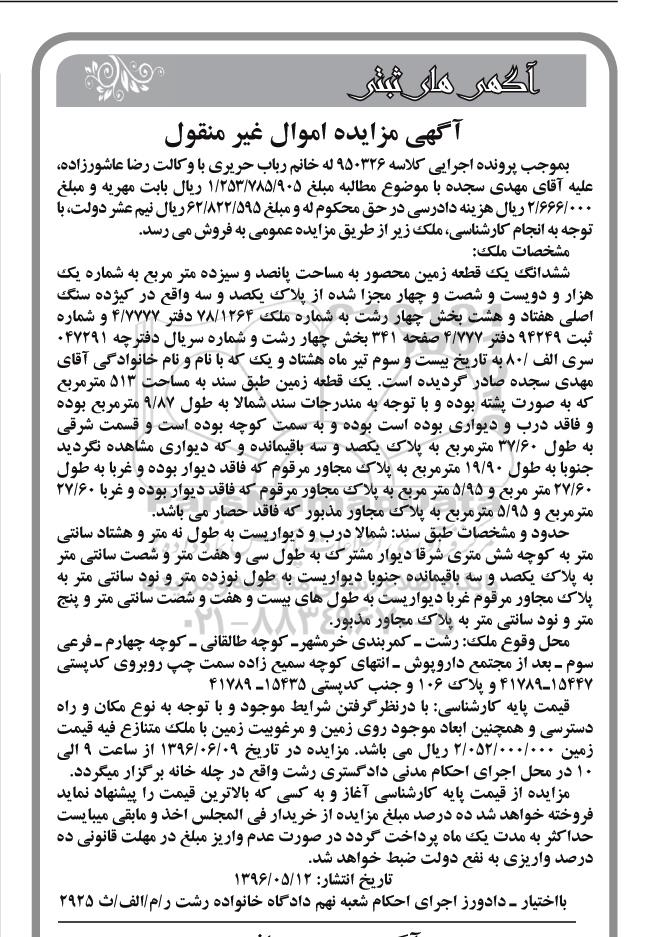 آگهی های ثبتی
آگهی مزایده اموال غیر منقول
بموجب پرونده اجرایی کلاسه ۹۵۰۳۲۶ له خانم رباب حریری با وکالت رضا عاشورزاده،
علیه آقای مهدی سجده با موضوع مطالبه مبلغ ۱/۲۵۳/۷۸۵/۹۰۵ ریال بابت مهریه و مبلغ
۲/۶۶۶/۰۰۰ ریال هزینه دادرسی در حق محکوم له و مبلغ ۶۲/۸۲۲/۵۹۵ ریال نیم عشر دولت، با
توجه به انجام کارشناسی، ملک زیر از طریق مزایده عمومی به فروش می رسد.
مشخصات ملک:
ششدانگ یک قطعه زمین محصور به مساحت پانصد و سیزده متر مربع به شماره یک
هزار و دویست و شصت و چهار مجزا شده از پلاک یکصد و سه واقع در کیژده سنگ
اصلی هفتاد و هشت بخش چهار رشت به شماره ملک ۷۸/۱۲۶۴ دفتر ۴/۷۷۷۷ و شماره
ثبت ۹۴۲۴۹ دفتر ۴/۷۷۷ صفحه ۳۴۱ بخش چهار رشت و شماره سریال دفترچه ۰۴۷۲۹۱
سری الف /۸۰ به تاریخ بیست و سوم تیر ماه هشتاد و یک که با نام و نام خانوادگی آقای
مهدی سجده صادر گردیده است. یک قطعه زمین طبق سند به مساحت ۵۱۳ مترمربع
که به صورت پشته بوده و با توجه به مندرجات سند شمالا به طول ۹/۸۷ مترمربع بوده
و فاقد درب و دیواری بوده است بوده و به سمت کوچه بوده است و قسمت شرقی
به طول ۳۷/۶۰ مترمربع به پلاک یکصد و سه باقیمانده و که دیواری مشاهده نگردید
جنوبا به طول ۱۹/۹۰ مترمربع به پلاک مجاور مرقوم که فاقد دیوار بوده و غربا به طول
۲۷/۶۰ متر مربع و ۵/۹۵ متر مربع به پلاک مجاور مرقوم که فاقد دیوار بوده و غربا ۲۷/۶۰
مترمربع و ۵/۹۵ مترمربع به پلاک مجاور مذبور که فاقد حصار می باشد.
حدود و مشخصات طبق سند: شمالا درب و دیواریست به طول نه متر و هشتاد سانتی
متر به کوچه شش متری شرقا دیوار مشترک به طول سی و هفت متر و شصت سانتی متر
به پلاک یکصد و سه باقیمانده جنوبا دیواریست به طول نوزده متر و نود سانتی متر به
پلاک مجاور مرقوم غربا دیواریست به طول های بیست و هفت و شصت سانتی متر و پنج
متر و نود سانتی متر به پلاک مجاور مذبور.
محل وقوع ملک: رشت ـ کمربندی خرمشهرـ کوچه طالقانی ـ کوچه چهارم ـ فرعی
سوم ـ بعد از مجتمع داروپوش ـ انتهای کوچه سمیع زاده سمت چپ روبروی کدپستی
۱۵۴۴۷ـ۴۱۷۸۹ و پلاک ۱۰۶ و جنب کدپستی ۱۵۴۳۵ـ ۴۱۷۸۹
قیمت پایه کارشناسی: با درنظرگرفتن شرایط موجود و با توجه به نوع مکان و راه
دسترسی و همچنین ابعاد موجود روی زمین و مرغوبیت زمین با ملک متنازع فیه قیمت
زمین ۲/۰۵۲/۰۰۰/۰۰۰ ریال می باشد. مزایده در تاریخ ۱۳۹۶/۰۶/۰۹ از ساعت ۹ الی
۱۰ در محل اجرای احکام مدنی دادگستری رشت واقع در چله خانه برگزار میگردد.
مزایده از قیمت پایه کارشناسی آغاز و به کسی که بالاترین قیمت را پیشنهاد نماید
فروخته خواهد شد ده درصد مبلغ مزایده از خریدار فی المجلس اخذ و مابقی میبایست
حداکثر به مدت یک ماه پرداخت گردد در صورت عدم واریز مبلغ در مهلت قانونی ده
درصد واریزی به نفع دولت ضبط خواهد شد.
تاریخ انتشار: ۱۳۹۶/۰۵/۱۲
بااختیار ـ دادورز اجرای احکام شعبه نهم دادگاه خانواده رشت ر/م/الف/ث ۲۹۲۵